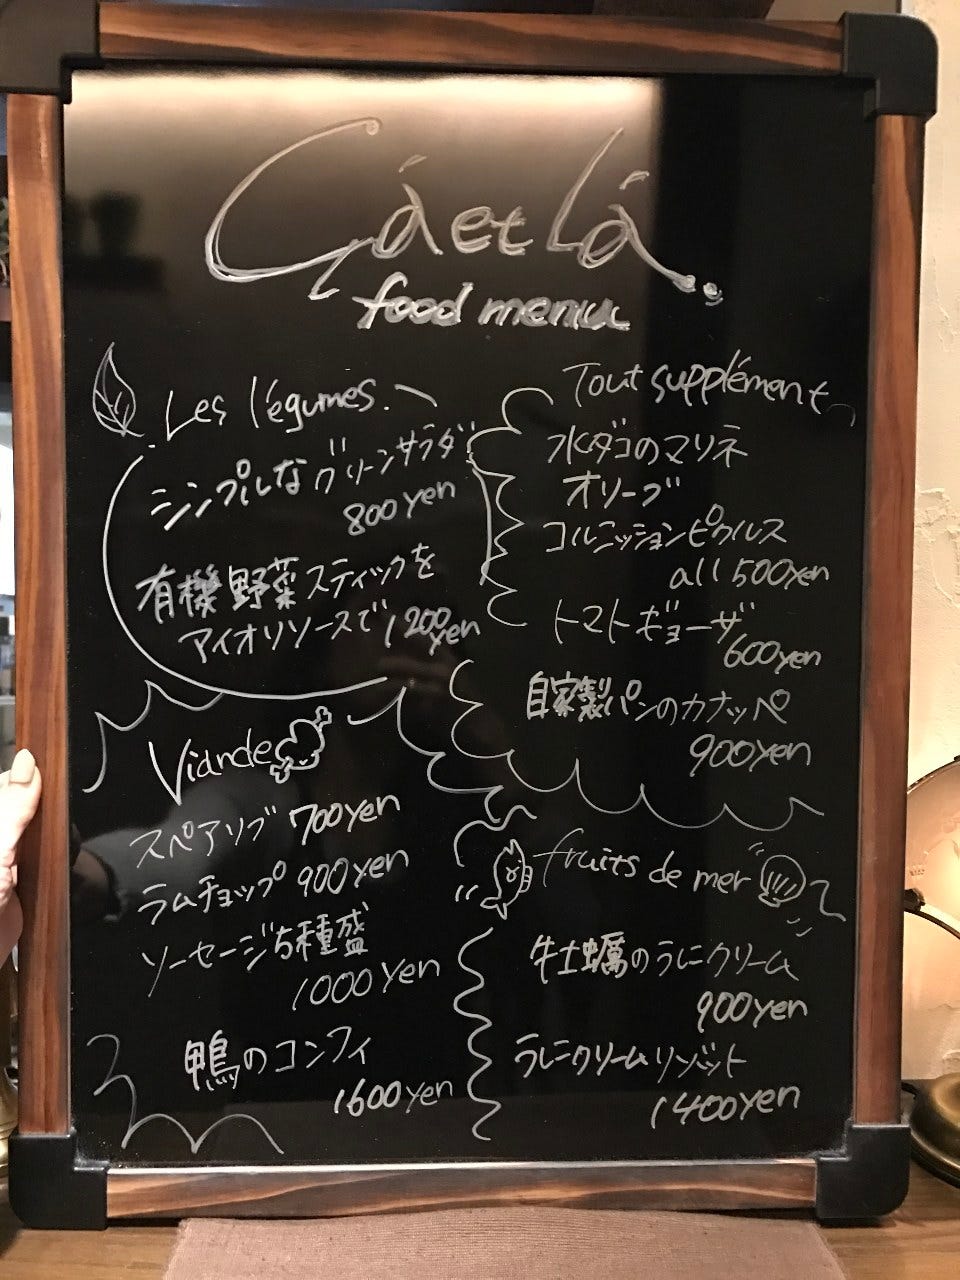 Çá et Lá
food menu
Les légumes.
シンプルなグリーンサラダ
800yen
有機野菜スティックを
アイオリソースで 1200yen
Viande
スペアリブ 700yen
ラムチョップ 900yen
ソーセージ5種盛
1000yen
鴨のコンフィ
1600yen
Tout supplément
水ダコのマリネ
オリーブ
コルニッションピクルス
all 500yen
トマトギョーザ
600yen
自家製パンのカナッペ
900yen
fruits de mer
牡蠣のうにクリーム
900yen
うにクリームリゾット
1400yen